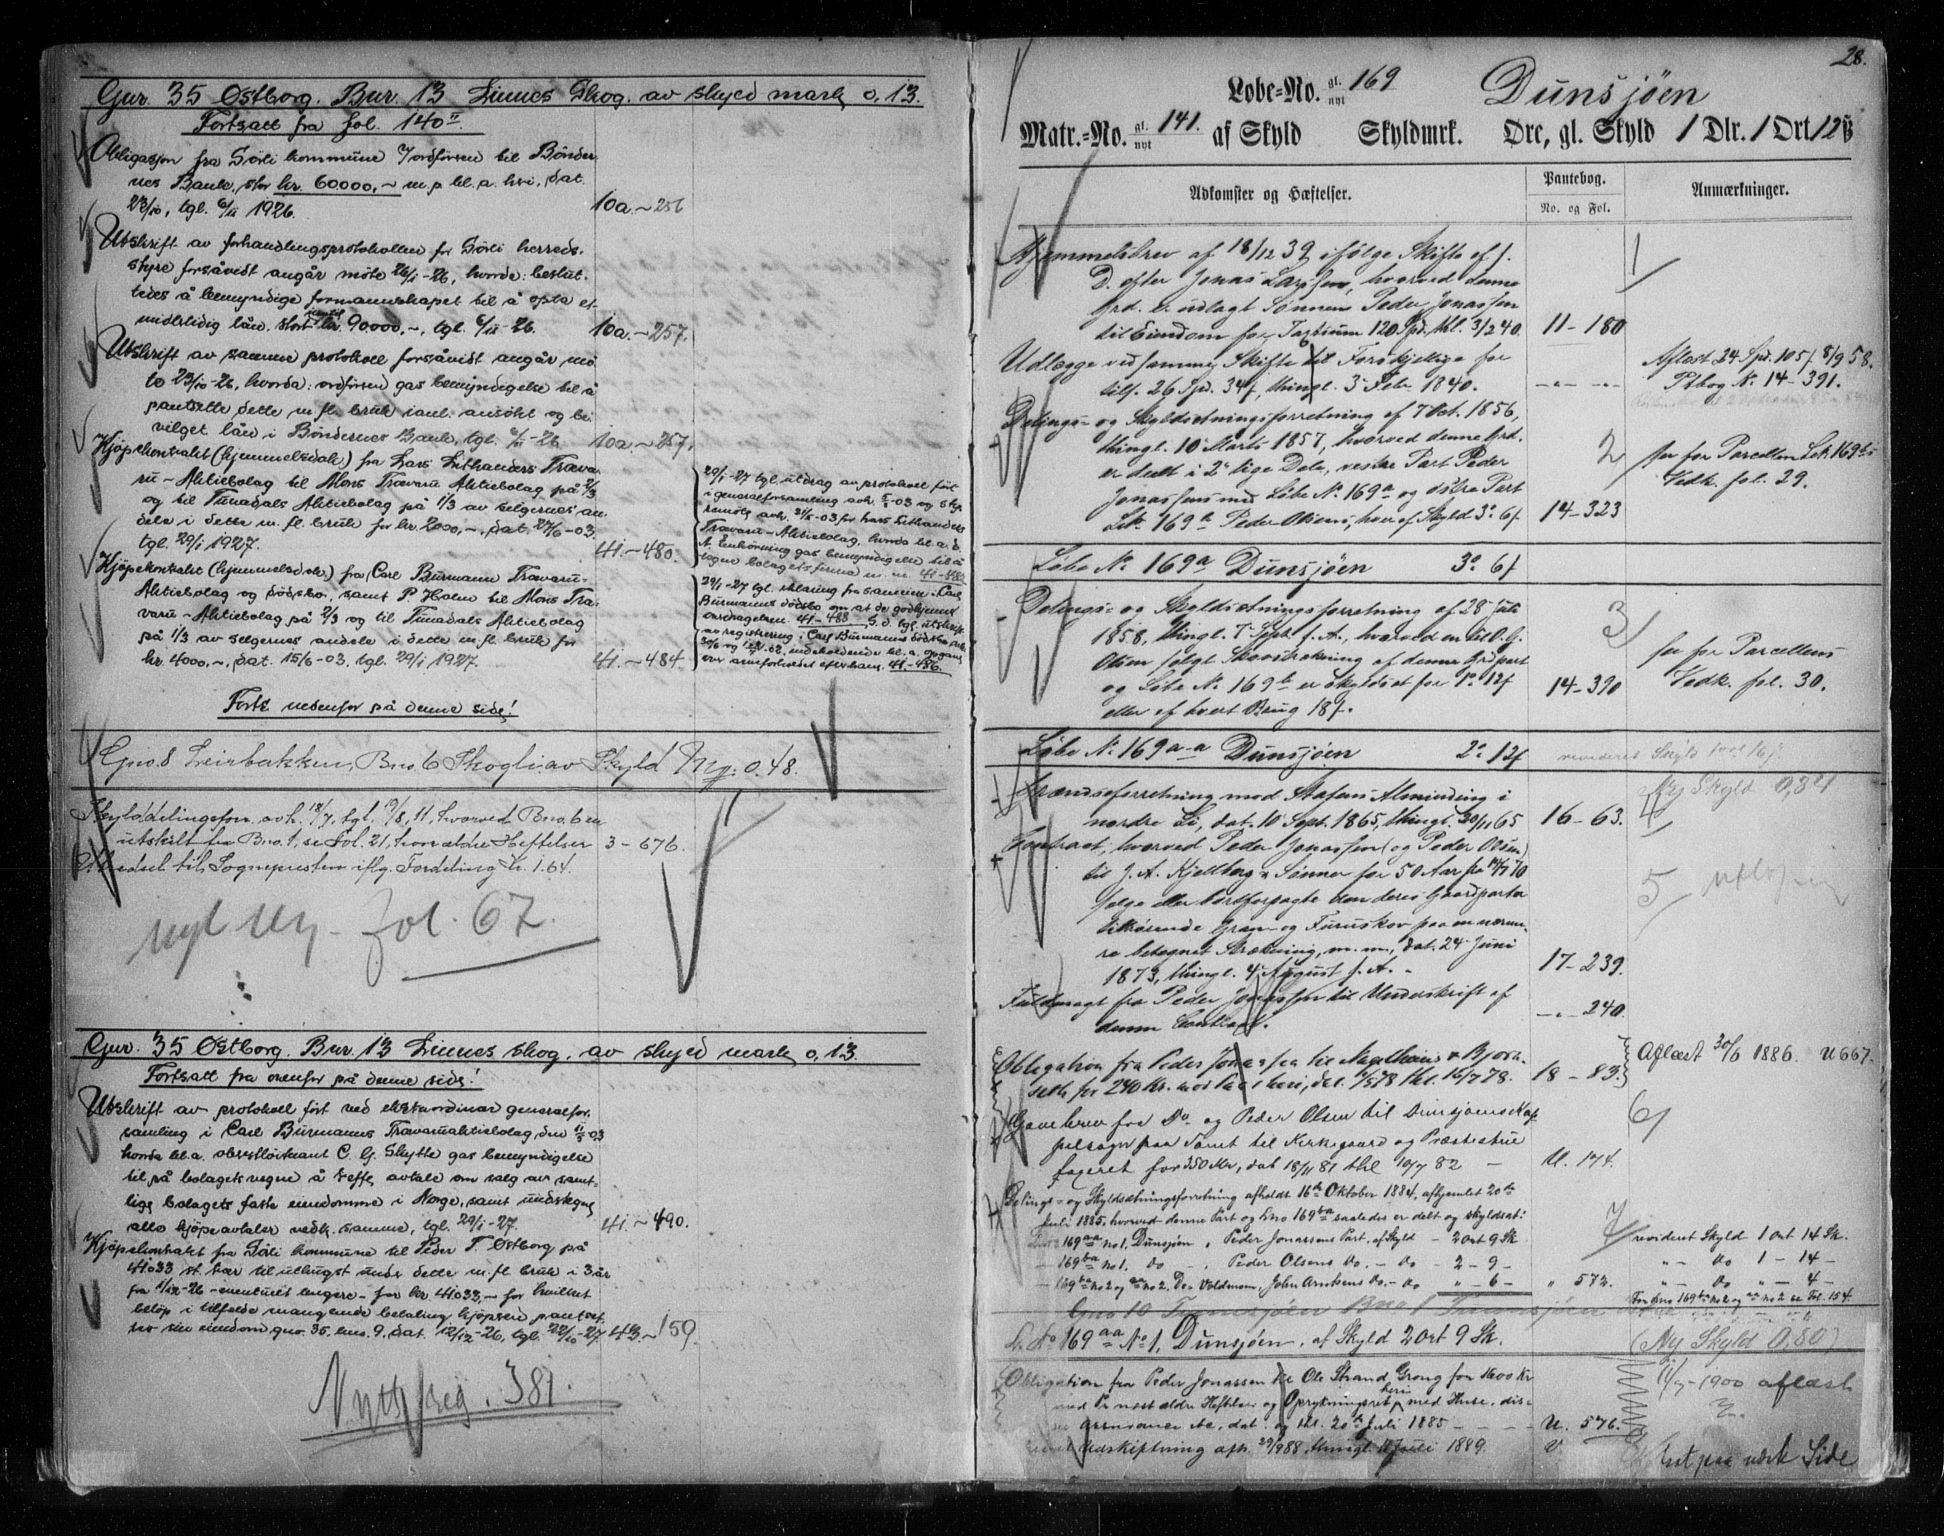 Gnr. 35 Østborg. Bnr. 13 Linnes Skog. av skyld mark 0,13.
Fortsatt fra fol. 140
Obligasjon fra Sörli kommune v/ordföreren til Bönder
nes Bank, stor kr. 60000,- m.p. bl.a. heri, dat.
23/10, tgl. 6/11 1926. 10a.-256
Utskrift av forhandlingsprotokollen for Sörli herreds-
styre forsåvidt angår möte 26/1-26, hvorda: beslut-
tedes å bemyndige formannskapet til å opta et
midlertidig lån, stort inntil kr. 90000,-, tgl. 6/11-26. 10a-257.
Utskrift av samme protokoll forsåvidt angår mö-
te 23/10-26, hvorda: ordföreren gas bemyndigelse til å
pantsette dette m.fl. bruk i anl. ansökt og be-
vilget lån i Böndernes Bank, tgl. 6/11-26. 10a-257.
Kjöpekontrakt (hjemmelsdok.) fra Lars Lithanders Trava-
ru-Aktiebolag til Mons Travaru Aktiebolag på 2/3
og til Tunadals Aktiebolag på 1/3 av selgernes an-
dele i dette m.fl. bruk for kr. 2000,-, dat. 27/6-03,
tgl. 29/1 1927. 41-480.
29/1-27 tgl. utdrag av protokoll fört
i generalforsamling avh. 5/5-03 og styr.
remöte avh. 31/5-03 for Lars Lithanders
Travaru-Aktiebolag, hvorda bl.a. d.
A. Enhörning gas bemyndigelse til å
tegne bolagets firma m.m. 41-482
Kjöpekontrakt (hjemmelsdok.) fra Carl Burmanns Travaru-
Aktiebolag og dödsbo, samt P. Holm til Mons Tra-
varu-Aktiebolag på 2/3 og til Tunadals Aktiebolag
på 1/3 av selgernes andele i dette m.fl. bruk for
kr. 4000,-, dat. 15/6-03, tgl. 29/1 1927. 41-484.
29/1-27 tgl. erklæring fra sameiere i Carl
Burmanns dödsbo om at de godkjenner
overdragelsen 41-488 S.d. tgl. utskrift
av registrering i Carl Burmanns dödsbo avh.
30/6 og 1902, inneholdende bl.a. opgave
over arveforholdet efter ham. 41-486
Forts. nedenfor på denne side!
Gno. 8 Leirbakken, Bno. 6 Skogli av Skyld Mg. 0.48.
Skylddelingsforr. avh. 18/7, tgl. 19/8, 11, hvorved Bno. 6 er
utskilt fra Bno. 1, se Fol. 21, hvor ældre Heftelser 3-676.
Arvedsel til Sognepresten iflg. Fordeling Kr. 1.64.
nyt reg. fol. 67.
Gnr. 35 Østborg. Bnr. 13 Linnes skog. av skyld mark 0,13.
Fortsatt fra ovenfor på denne side!
Utskrift av protokoll fört ved ekstraordinær generalfor-
samling i Carl Burmanns Travaruaktiebolag, den 11/5 03
hvorda bl.a. oberstlöitnant C. G. Skytte gas bemyndigelse
til på bolagets vegne å treffe avtale om salg av samt-
lige bolagets faste eiendomme i Norge, samt undertegne
alle kjöpeavtaler vedk. samme, tgl. 29/1-27. 41-490.
Kjöpekontrakt fra Sörli kommune til Peder T. Østborg på
41033 st. trær til uthugst under dette m.fl. bruk i 3 år
fra 1/12-26 - eventuelt lengere - for kr. 41033,- for hvilket
belöp i tilfelde manglende betaling kjöperen pantset-
ter sin eiendom gno. 35, bno. 9, dat. 12/12-26, tgl. 22/10-27 43-159.
Nytt reg. 381.
28.
Løbe-No. gl. nyt 169 Dunsjøen
Matr.-No. gl. nyt 141. af Skyld Skyldmrk. Øre, gl. Skyld 1 Dlr. 1 Ort 12 ß
Adkomster og Hæftelser.
Pantebog.
No. og Fol.
Anmærkninger.
Hjemmelsbrev af 18/12 39, ifølge Skifte af s.
D. efter Jonas Larssen, hvorved denne
Grd. er udlagt Sønnen Peder Jonassen
til Eiendom for Taxtsum 120 Spd., thl. 3/2 40. 11-180
1
Udlægge ved samme Skifte til Forskjellige for
tils. 26 Spd. 34 ß, thingl. 3 Febr. 1840. -"- -"-
Aflæst 24 Spd. 105 ß 8/9 58.
Ptbog No. 14-391.
Delings- og Skyldsætningsforretning af 7 Oct. 1856,
thingl. 10 Marts 1857, hvorved denne Grd.
er deelt i 2 lige Dele, vestre Part Peder
Jonassens med Løbe No. 169a og østre Part
Lb. 169b Peder Olsens, hver af Skyld 3 6ß 14-323
2 se for Parcellen Lb. 169b's
Vedk. fol. 29.
Løbe No. 169a Dunsjøen 3 6ß
Delings- og Skyldsætningsforretning af 28 Juli
1858, thingl. 7 Sept. s. A., hvorved en til O. G.
Olsen solgt Skovstrækning af denne Grdpart
og Løbe No. 169b er skyldsat for 1 12ß 14-390
eller af hvert Brug 18ß.
3 se for Parcellens
Vedk. fol. 30.
Løbe No. 169a-a Dunsjøen 2 12ß revideret Skyld
Ny Skyld 0,34
Grændseforretning mod Statens Alminding i
nordre Li, dat. 10 Sept. 1865, thingl. 30/11 65 16-63.
4
Contract, hvorved Peder Jonassen (og Peder Olsen)
til J. A. Kjellberg & Sønner for 50 Aar fra 14/4 70
sælge eller bortforpagte den deres Gaardparter
tilhørende Gran- og Furuskov paa en nærme-
re betegnet Strækning, m.m., dat. 24 Juni
1873, thingl. 4 August s. A. 17-239.
5
Fuldmagt fra Peder Jonassen til Underskrift af
denne Contract. -"- 240.
Obligation fra Peder Jonassen til Mathæus Bjørn-
seth for 240 Kr. mod Pant heri, dat. 14/5 78 thl. 16/7 78. 18-83.
Aflæst 30/6 1886. U 667.
Gavebrev fra Do. og Peder Olsen til Dunsjøens Kap-
pelsogn paa Tomt til Kirkegaard og Præstestue
taxeret for 350 Kr, dat 18/11 81 thl 10/7 82 - U. 174.
6
Delings- og Skyldsætningsforretning afholdt 16de Oktober 1884, afhjemlet 20de
Juli 1885, hvorved denne Part og Lno 169ba saaledes er delt og skyldsat:
Lno 169aa no 1. Dunsjøen, Peder Jonassens Part, af Skyld - 2 Ort 9 Sk
- 169ba no. 1. do - , Peder Olsens Do. - do - 2 - 9 -
- 169ba no 2 og aa no 2. Do. Voldmoen, John Arntsens do. - do " - 6 - " 572.
7 revideret Skyld 1 Ort 14 Sk.
" - do 1 - 14 -
" - do " - 4 -
For Lno 169ba no 2 og aa no 2 se Fol. 154.
L. No 169aa No 1, Dunsjøen, af Skyld 2 Ort 9 Sk. (Ny Skyld 0,80)
Obligation fra Peder Jonassen til Ole Strand Grong for 1600 Kr
med Pr næst ældre Heftelser og Oprykningsret heri med Huse, dis-
ses Assurance etc, dat. og thl. 20de Juli 1885 - - - U. 576.
11/7-1900 aflæst
Udskiftning afh. 29/9 88, thingl. 11 Juli 1889. V
Fort paa næste Side